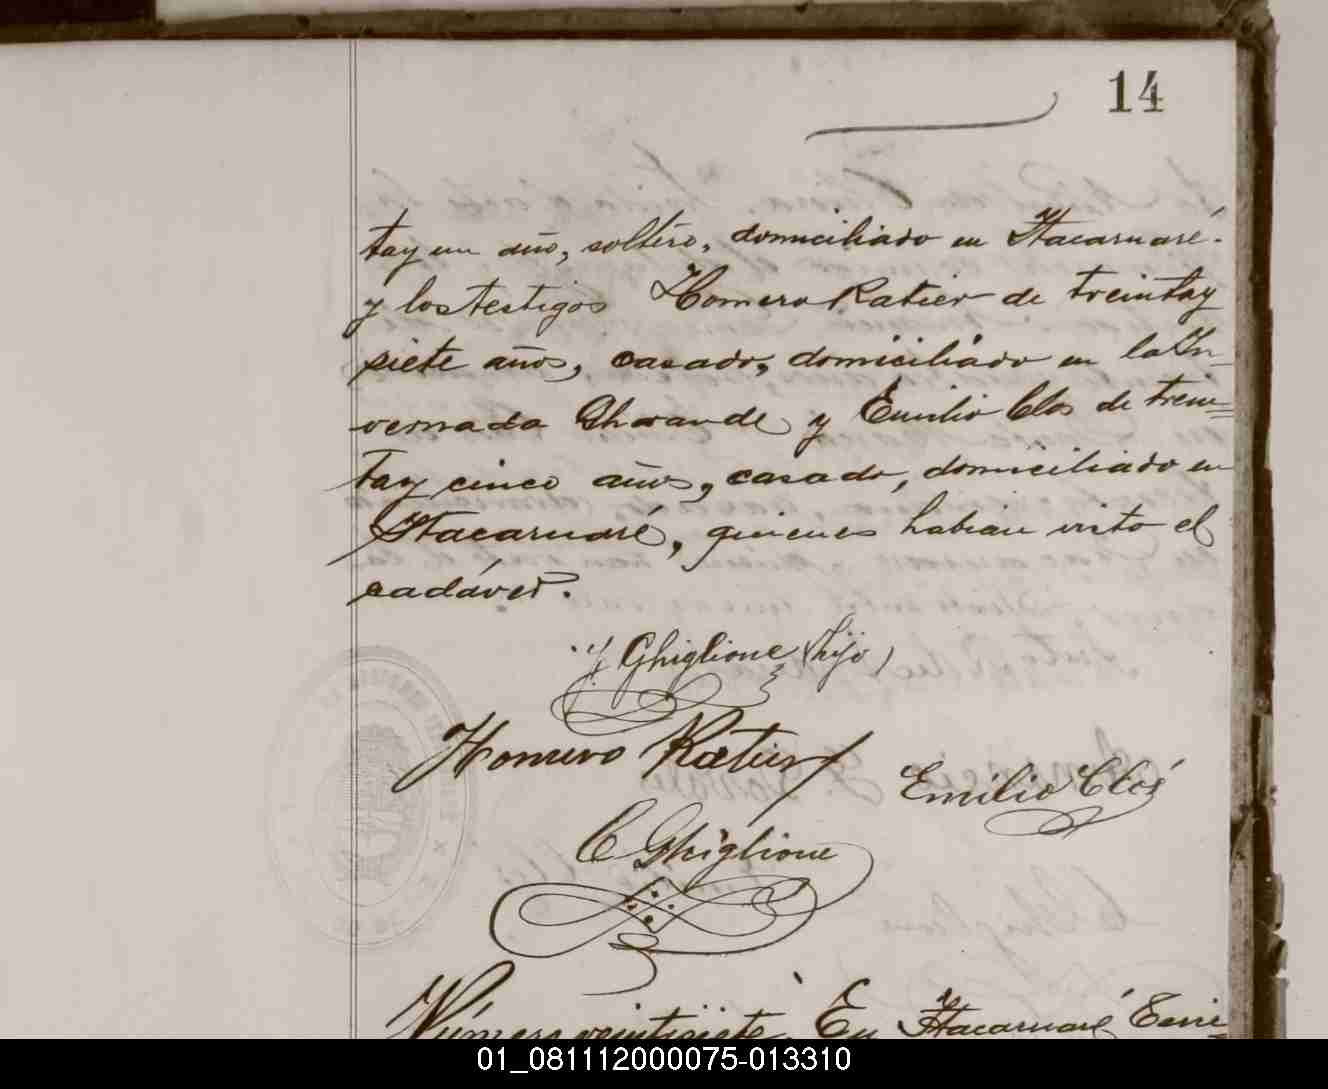 14
tay un año, soltero, domiciliado en Itacaruaré.
y los testigos Homero Ratier de treintay
siete años, casado, domiciliado en la In-
vernada Ghrande y Emilio Clos de trein=
tay cinco años, casado, domiciliado en
Itacaruaré, quienes habian visto el
cadáver.
Ghiglione (hijo)
Homero Ratier
Emilio Clos
C Ghiglione
Número veintisiete. En Itacaruaré
01_081112000075-013310